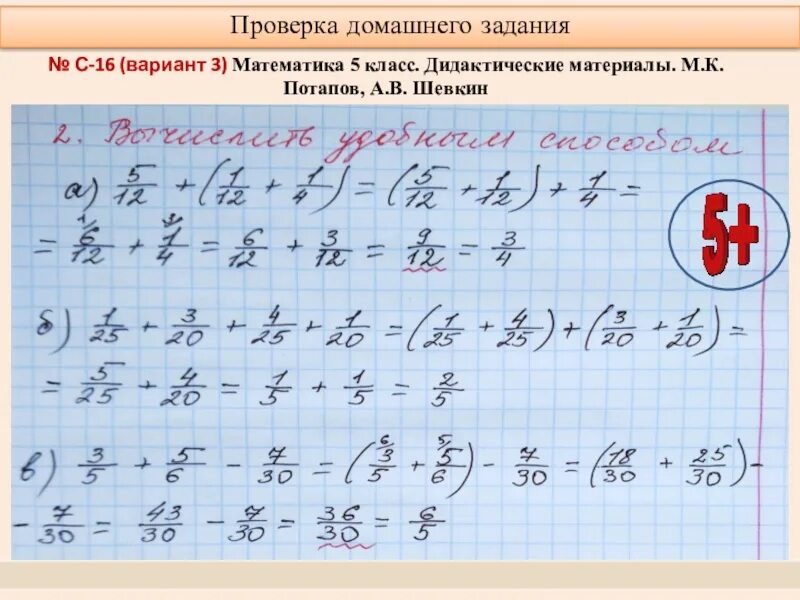 Проверка домашнего задания
№ С-16 (вариант 3) Математика 5 класс. Дидактические материалы. М.К.
Потапов, А.В. Шевкин
2. Вычислить удобным способом
а) 5/12 + (1/12 + 1/4) = (5/12 + 1/12) + 1/4 =
= 6/12 + 1/4 = 6/12 + 3/12 = 9/12 = 3/4
5+
б) 1/25 + 3/20 + 4/25 + 1/20 = (1/25 + 4/25) + (3/20 + 1/20) =
= 5/25 + 4/20 = 1/5 + 1/5 = 2/5
в) 3/5 + 5/6 - 7/30 = (3/5 + 5/6) - 7/30 = (18/30 + 25/30) -
- 7/30 = 43/30 - 7/30 = 36/30 = 6/5